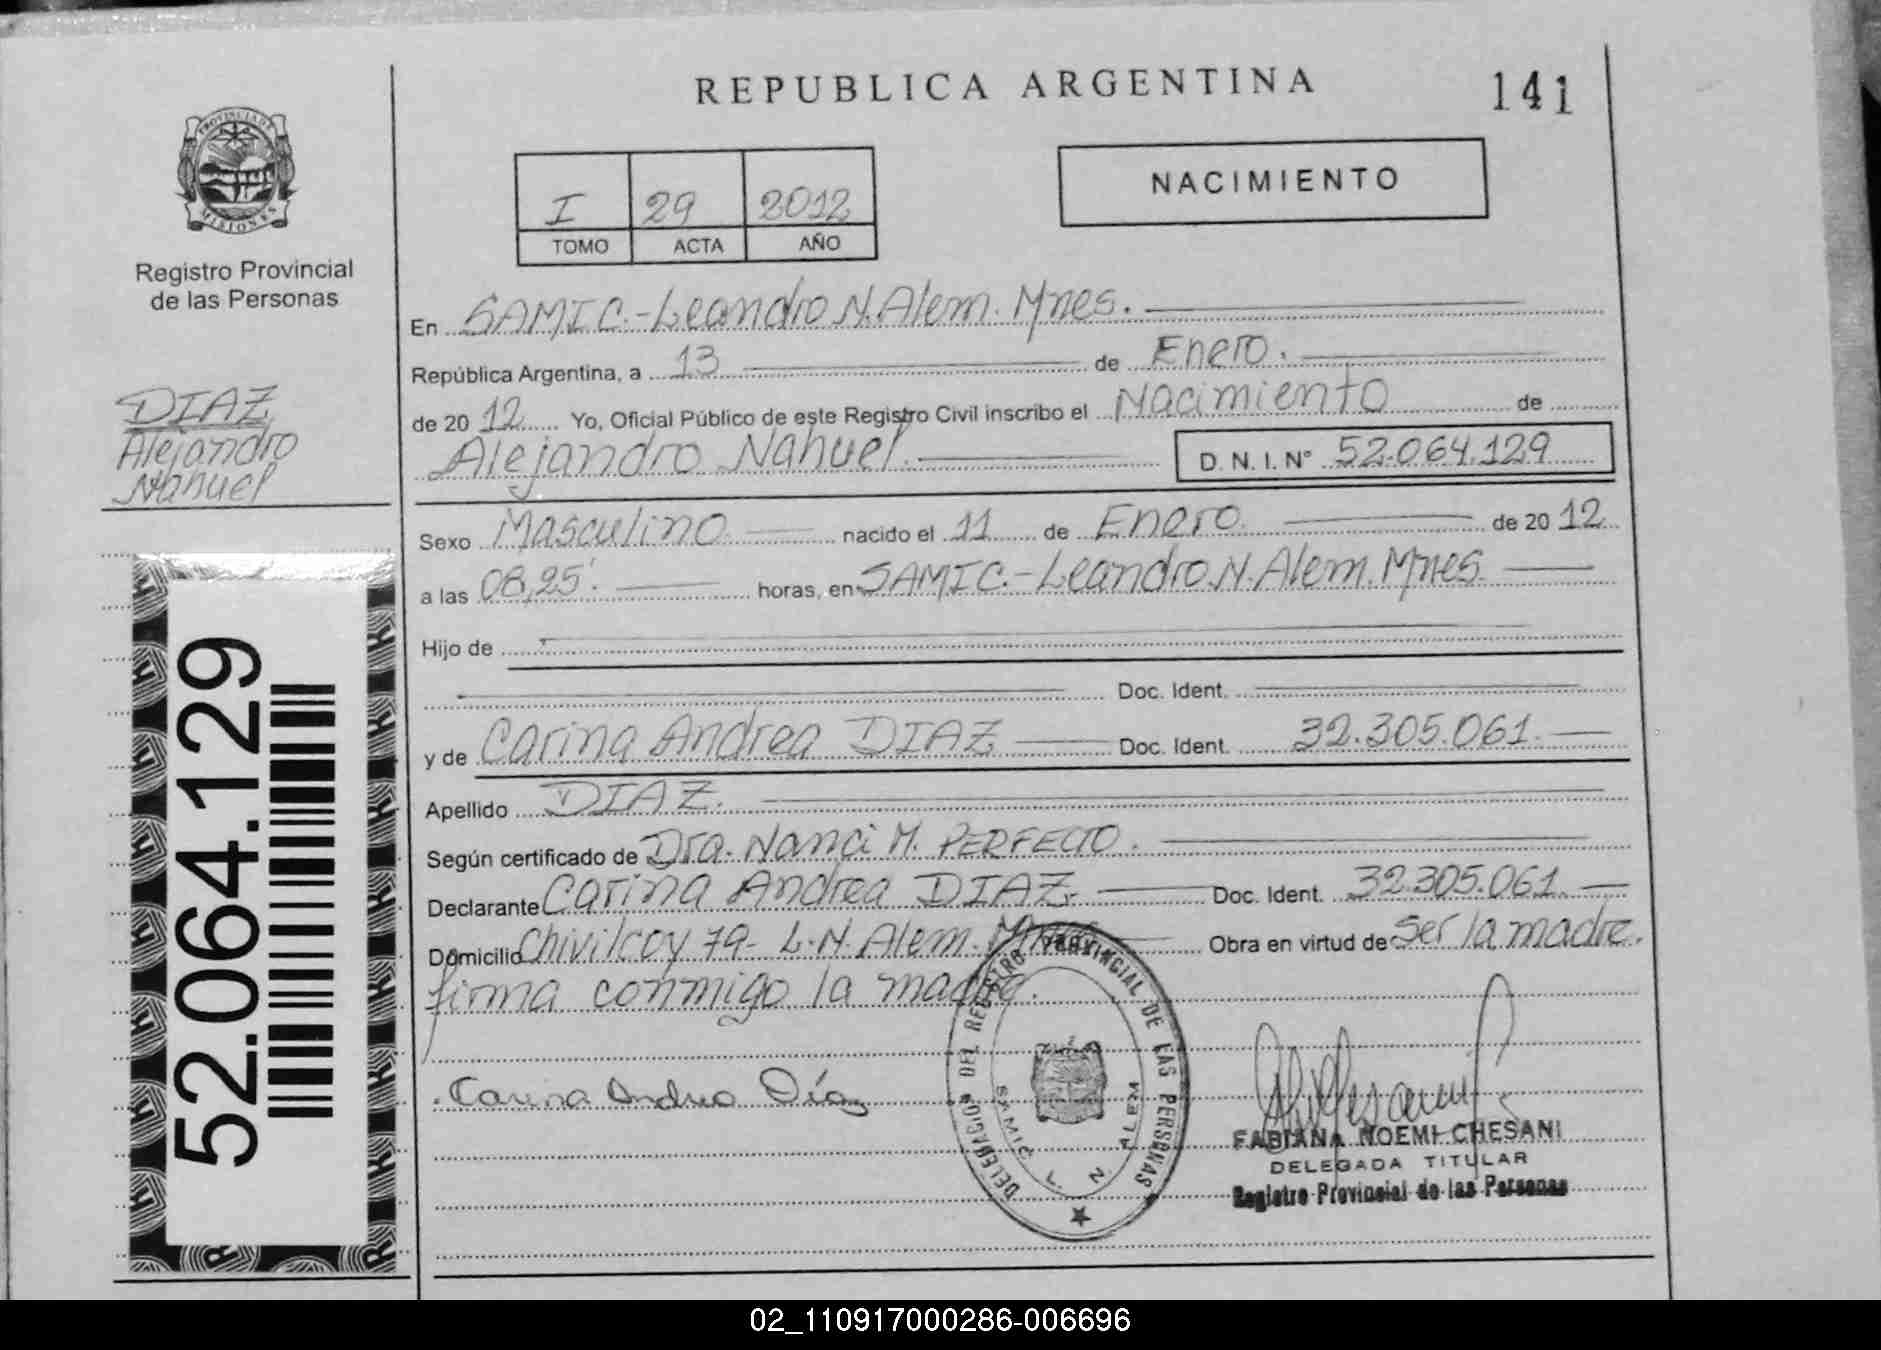 REPUBLICA ARGENTINA
141
PROVINCIA DE
MISIONES
Registro Provincial
de las Personas
I 29 2012
TOMO ACTA AÑO
NACIMIENTO
En SAMIC.-Leandro N. Alem. Mnes.
República Argentina, a 13 de Enero.
de 20 12 Yo, Oficial Público de este Registro Civil inscribo el Nacimiento de
Alejandro Nahuel. D. N. I. N° 52.064.129
DIAZ
Alejandro
Nahuel
Sexo Masculino nacido el 11 de Enero. de 20 12
a las 08,25'. horas, en SAMIC.-Leandro.N.Alem.Mnes.
Hijo de
Doc. Ident.
y de Carina Andrea DIAZ Doc. Ident. 32.305.061.
Apellido DIAZ.
Según certificado de Dra. Nanci M. PERFECTO.
Declarante Carina Andrea DIAZ. Doc. Ident. 32.305.061.
Domicilio Chivilcoy 79- L.N. Alem. Mnes Obra en virtud de Ser la madre.
firma conmigo la madre.
Carina Andrea Díaz
DELEGACION DEL REGISTRO PROVINCIAL DE LAS PERSONAS
SAMIC L. N. ALEM
FABIANA NOEMI CHESANI
DELEGADA TITULAR
Registro Provincial de las Personas
52.064.129
02_110917000286-006696